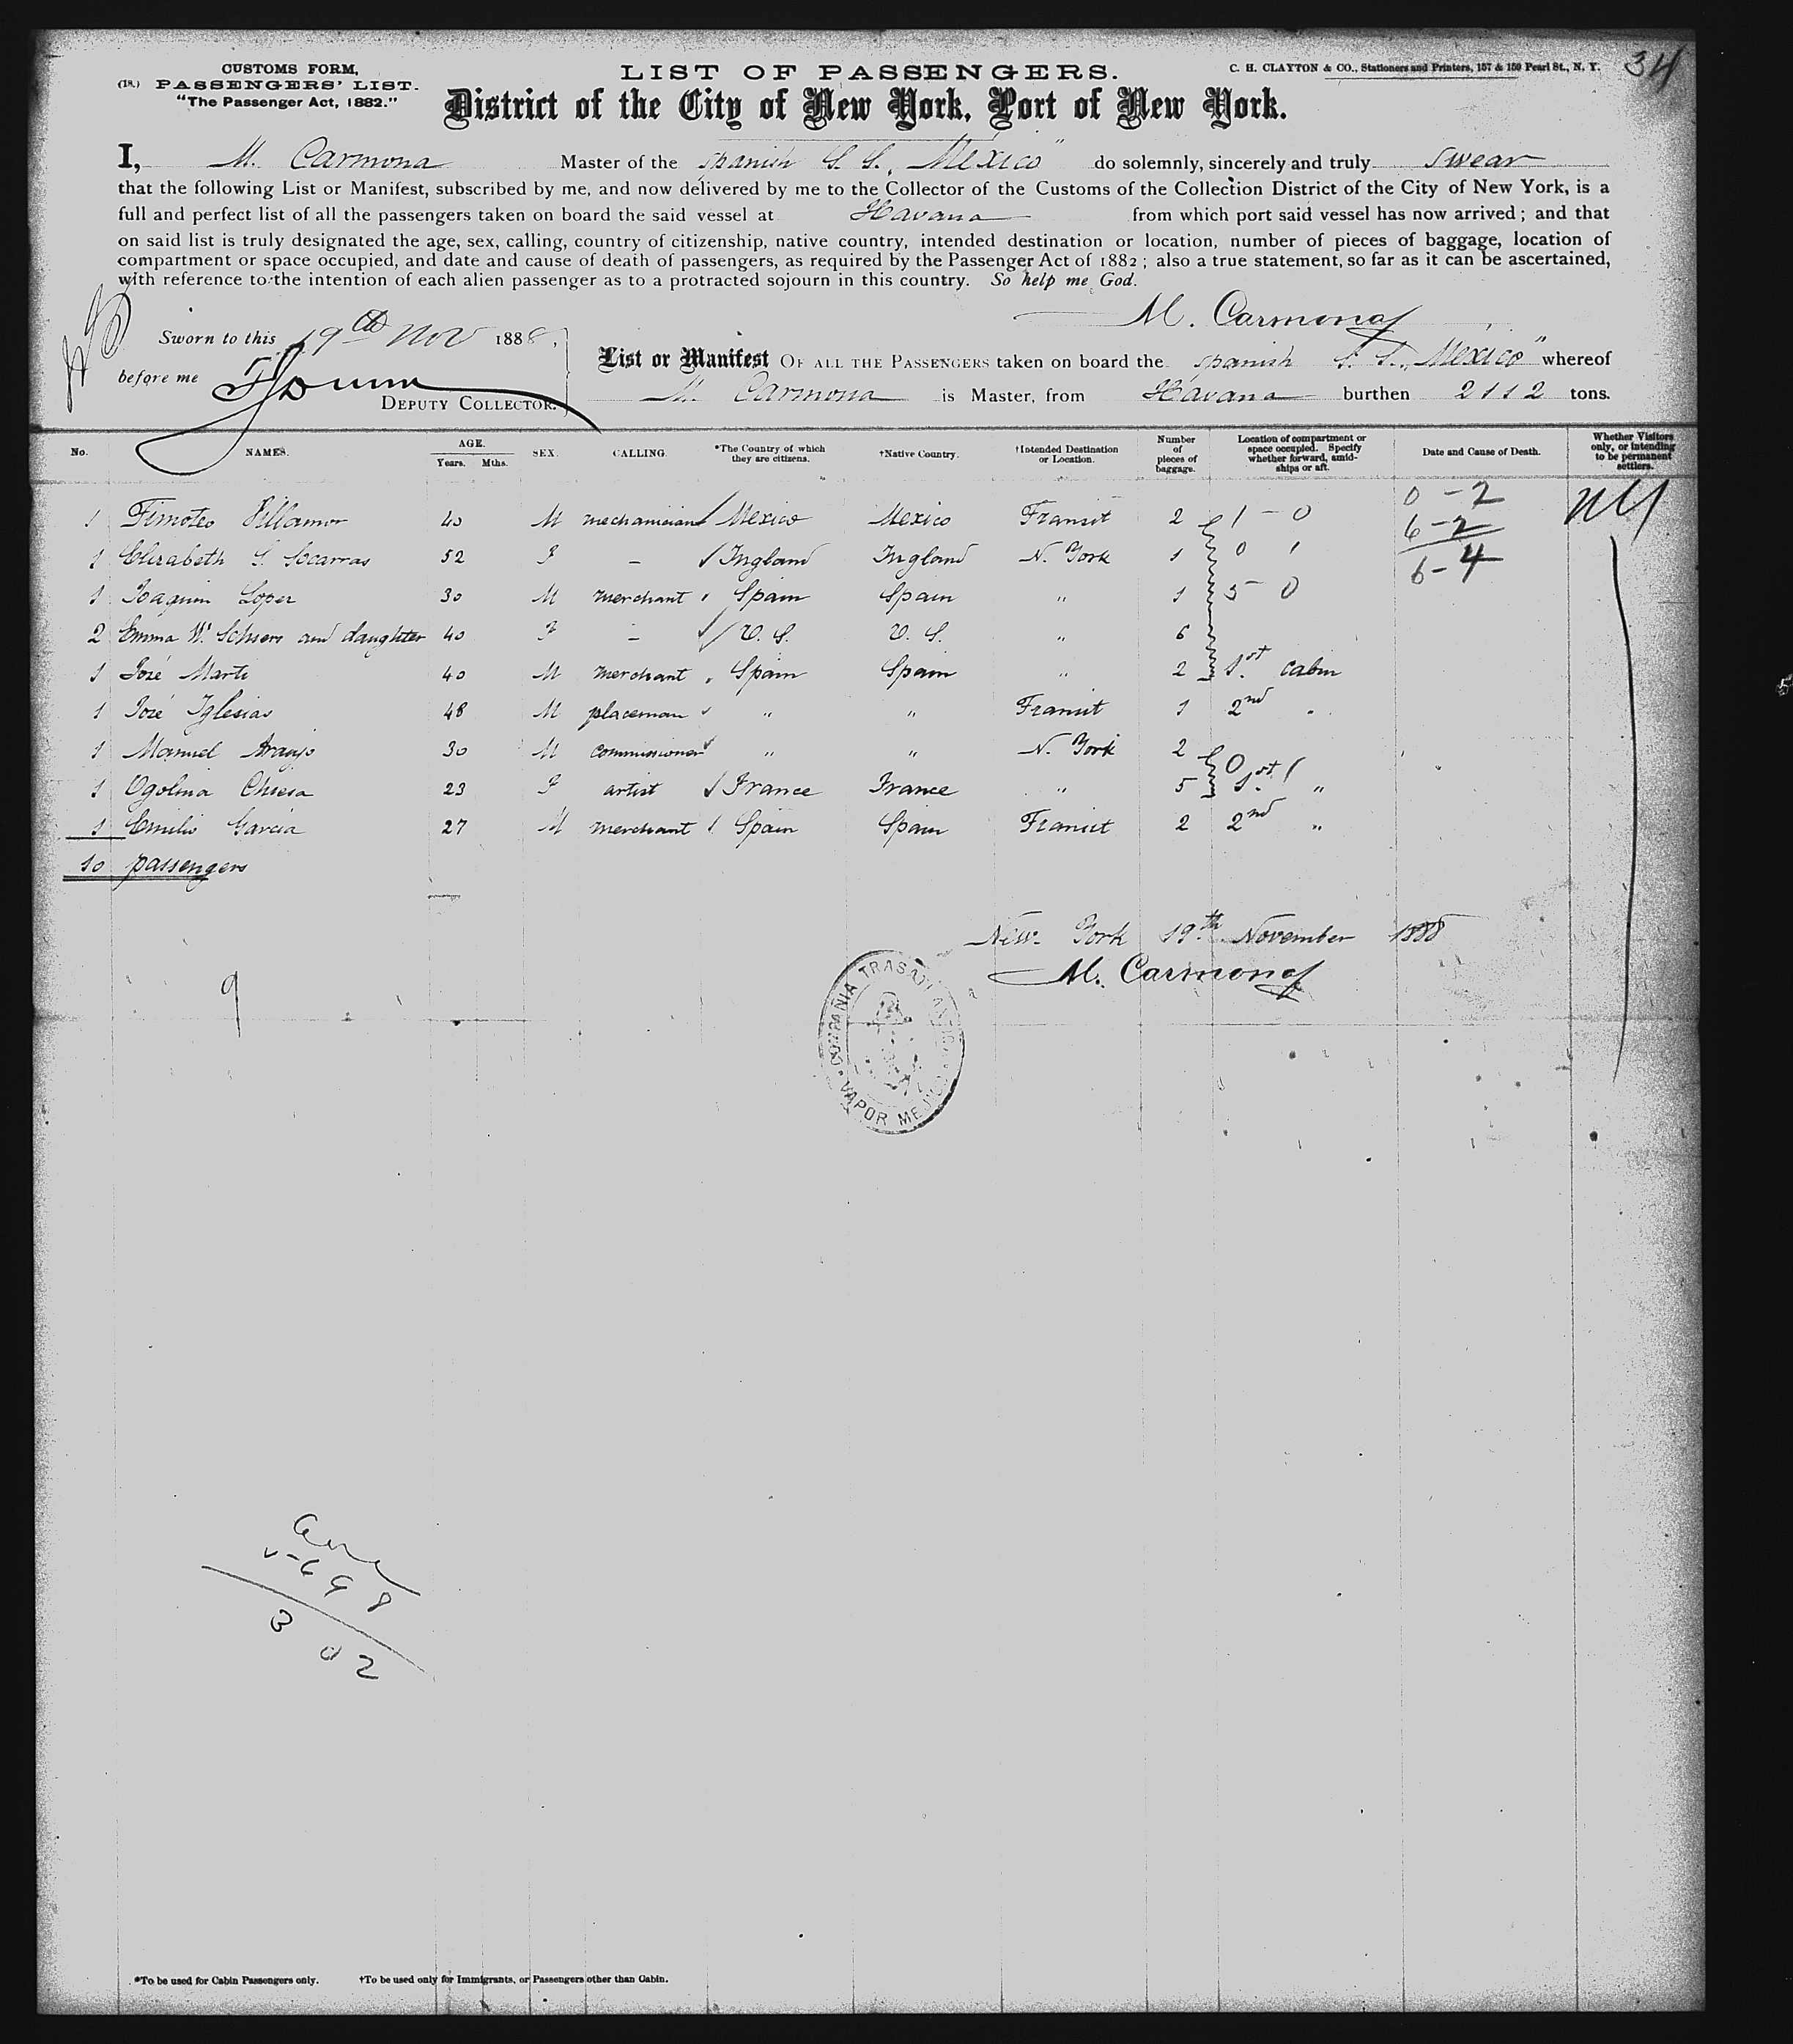 34
CUSTOMS FORM,
(18.) PASSENGERS' LIST.
"The Passenger Act, 1882."
LIST OF PASSENGERS.
C. H. CLAYTON & CO., Stationers and Printers, 157 & 159 Pearl St., N. Y.
District of the City of New York, Port of New York.
I, M. Carmona Master of the Spanish S. S. „Mexico" do solemnly, sincerely and truly swear
that the following List or Manifest, subscribed by me, and now delivered by me to the Collector of the Customs of the Collection District of the City of New York, is a
full and perfect list of all the passengers taken on board the said vessel at Havana from which port said vessel has now arrived; and that
on said list is truly designated the age, sex, calling, country of citizenship, native country, intended destination or location, number of pieces of baggage, location of
compartment or space occupied, and date and cause of death of passengers, as required by the Passenger Act of 1882; also a true statement, so far as it can be ascertained,
with reference to the intention of each alien passenger as to a protracted sojourn in this country. So help me God.
M. Carmona
Sworn to this 19th Nov 1888,
before me
DEPUTY COLLECTOR.
List or Manifest OF ALL THE PASSENGERS taken on board the Spanish S. S. „Mexico" whereof
M. Carmona is Master, from Havana burthen 2112 tons.
No. NAMES. AGE. Years. Mths. SEX. CALLING. *The Country of which they are citizens. †Native Country. †Intended Destination or Location. Number of pieces of baggage. Location of compartment or space occupied. Specify whether forward, amidships or aft. Date and Cause of Death. Whether Visitors only, or intending to be permanent settlers.
1 Timoteo Villamor 40 M mechanician Mexico Mexico Transit 2 1 - 0 0 - 2
6 - 2
1 Elizabeth S. Socarras 52 F – Ingland Ingland N. York 1 0 1 6 - 4
1 Joaquin Lopez 30 M merchant Spain Spain " 1 5 - 0
2 Emma W. Schiers and daughter 40 F – U. S. U. S. " 6
1 José Marti 40 M merchant Spain Spain " 2 1st cabin
1 José Iglesias 48 M placeman " " Transit 1 2nd "
1 Manuel Araujo 30 M commissioner " " N. York 2 0 1
1 Ogolina Chiesa 23 F artist France France " 5 1st "
1 Emilio Garcia 27 M merchant Spain Spain Transit 2 2nd "
10 passengers
New York 19th November 1888
M. Carmona
9
COMPAÑIA TRASATLANTICA
VAPOR MEJICO
698
302
*To be used for Cabin Passengers only. †To be used only for Immigrants, or Passengers other than Cabin.